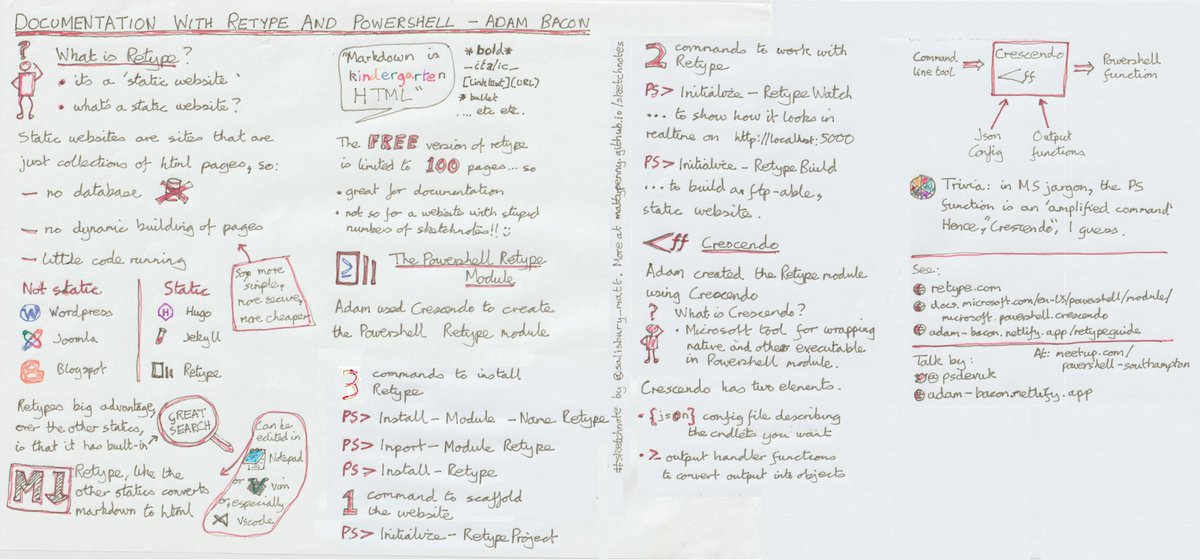 DOCUMENTATION WITH RETYPE AND POWERSHELL – ADAM BACON
?
What is Retype?
• it's a 'static website'
• what's a static website?
Static websites are sites that are
just collections of html pages, so:
– no database
– no dynamic building of pages
– little code running
So, more
simple,
more secure,
more cheaper
Not static
Wordpress
Joomla
Blogspot
Static
Hugo
Jekyll
Retype
Retypes big advantage,
over the other statics,
is that it has built-in
GREAT
SEARCH
M↓
Retype, like the
other statics converts
markdown to html
Can be
edited in
Notepad
or vim
or, especially
Vscode
"Markdown is
kindergarten
HTML"
*bold*
_italic_
[linktext](URL)
* bullet
.... etc etc.
The FREE version of retype
is limited to 100 pages... so
• great for documentation
• not so for a website with stupid
numbers of sketchnotes!!
The Powershell Retype
Module
Adam used Crescendo to create
the Powershell Retype module
3 commands to install
Retype
PS> Install-Module -Name Retype
PS> Import-Module Retype
PS> Install-Retype
1 command to scaffold
the website
PS> Initialize-RetypeProject
#sketchnote by @salisbury_matt. More at mattypenny.github.io/sketchnotes
2 commands to work with
Retype
PS> Initialize-Retype Watch
... to show how it looks in
realtime on http://localhost:5000
PS> Initialize-Retype Build
... to build an ftp-able,
static website.
<ff Crescendo
Adam created the Retype module
using Crescendo
? What is Crescendo?
• Microsoft tool for wrapping
native and other executable
in Powershell module.
Crescendo has two elements.
• {json} config file describing
the cmdlets you want
• >_ output handler functions
to convert output into objects
Command
line tool
Crescendo
<ff
Powershell
function
Json
Config
Output
functions
Trivia: in MS jargon, the PS
function is an 'amplified command'
Hence, "Crescendo", I guess.
See:
retype.com
docs.microsoft.com/en-US/powershell/module/
microsoft.powershell.crescendo
adam-bacon.netlify.app/retypeguide
Talk by:
psdevuk
adam-bacon.netlify.app
At: meetup.com/
powershell-southampton